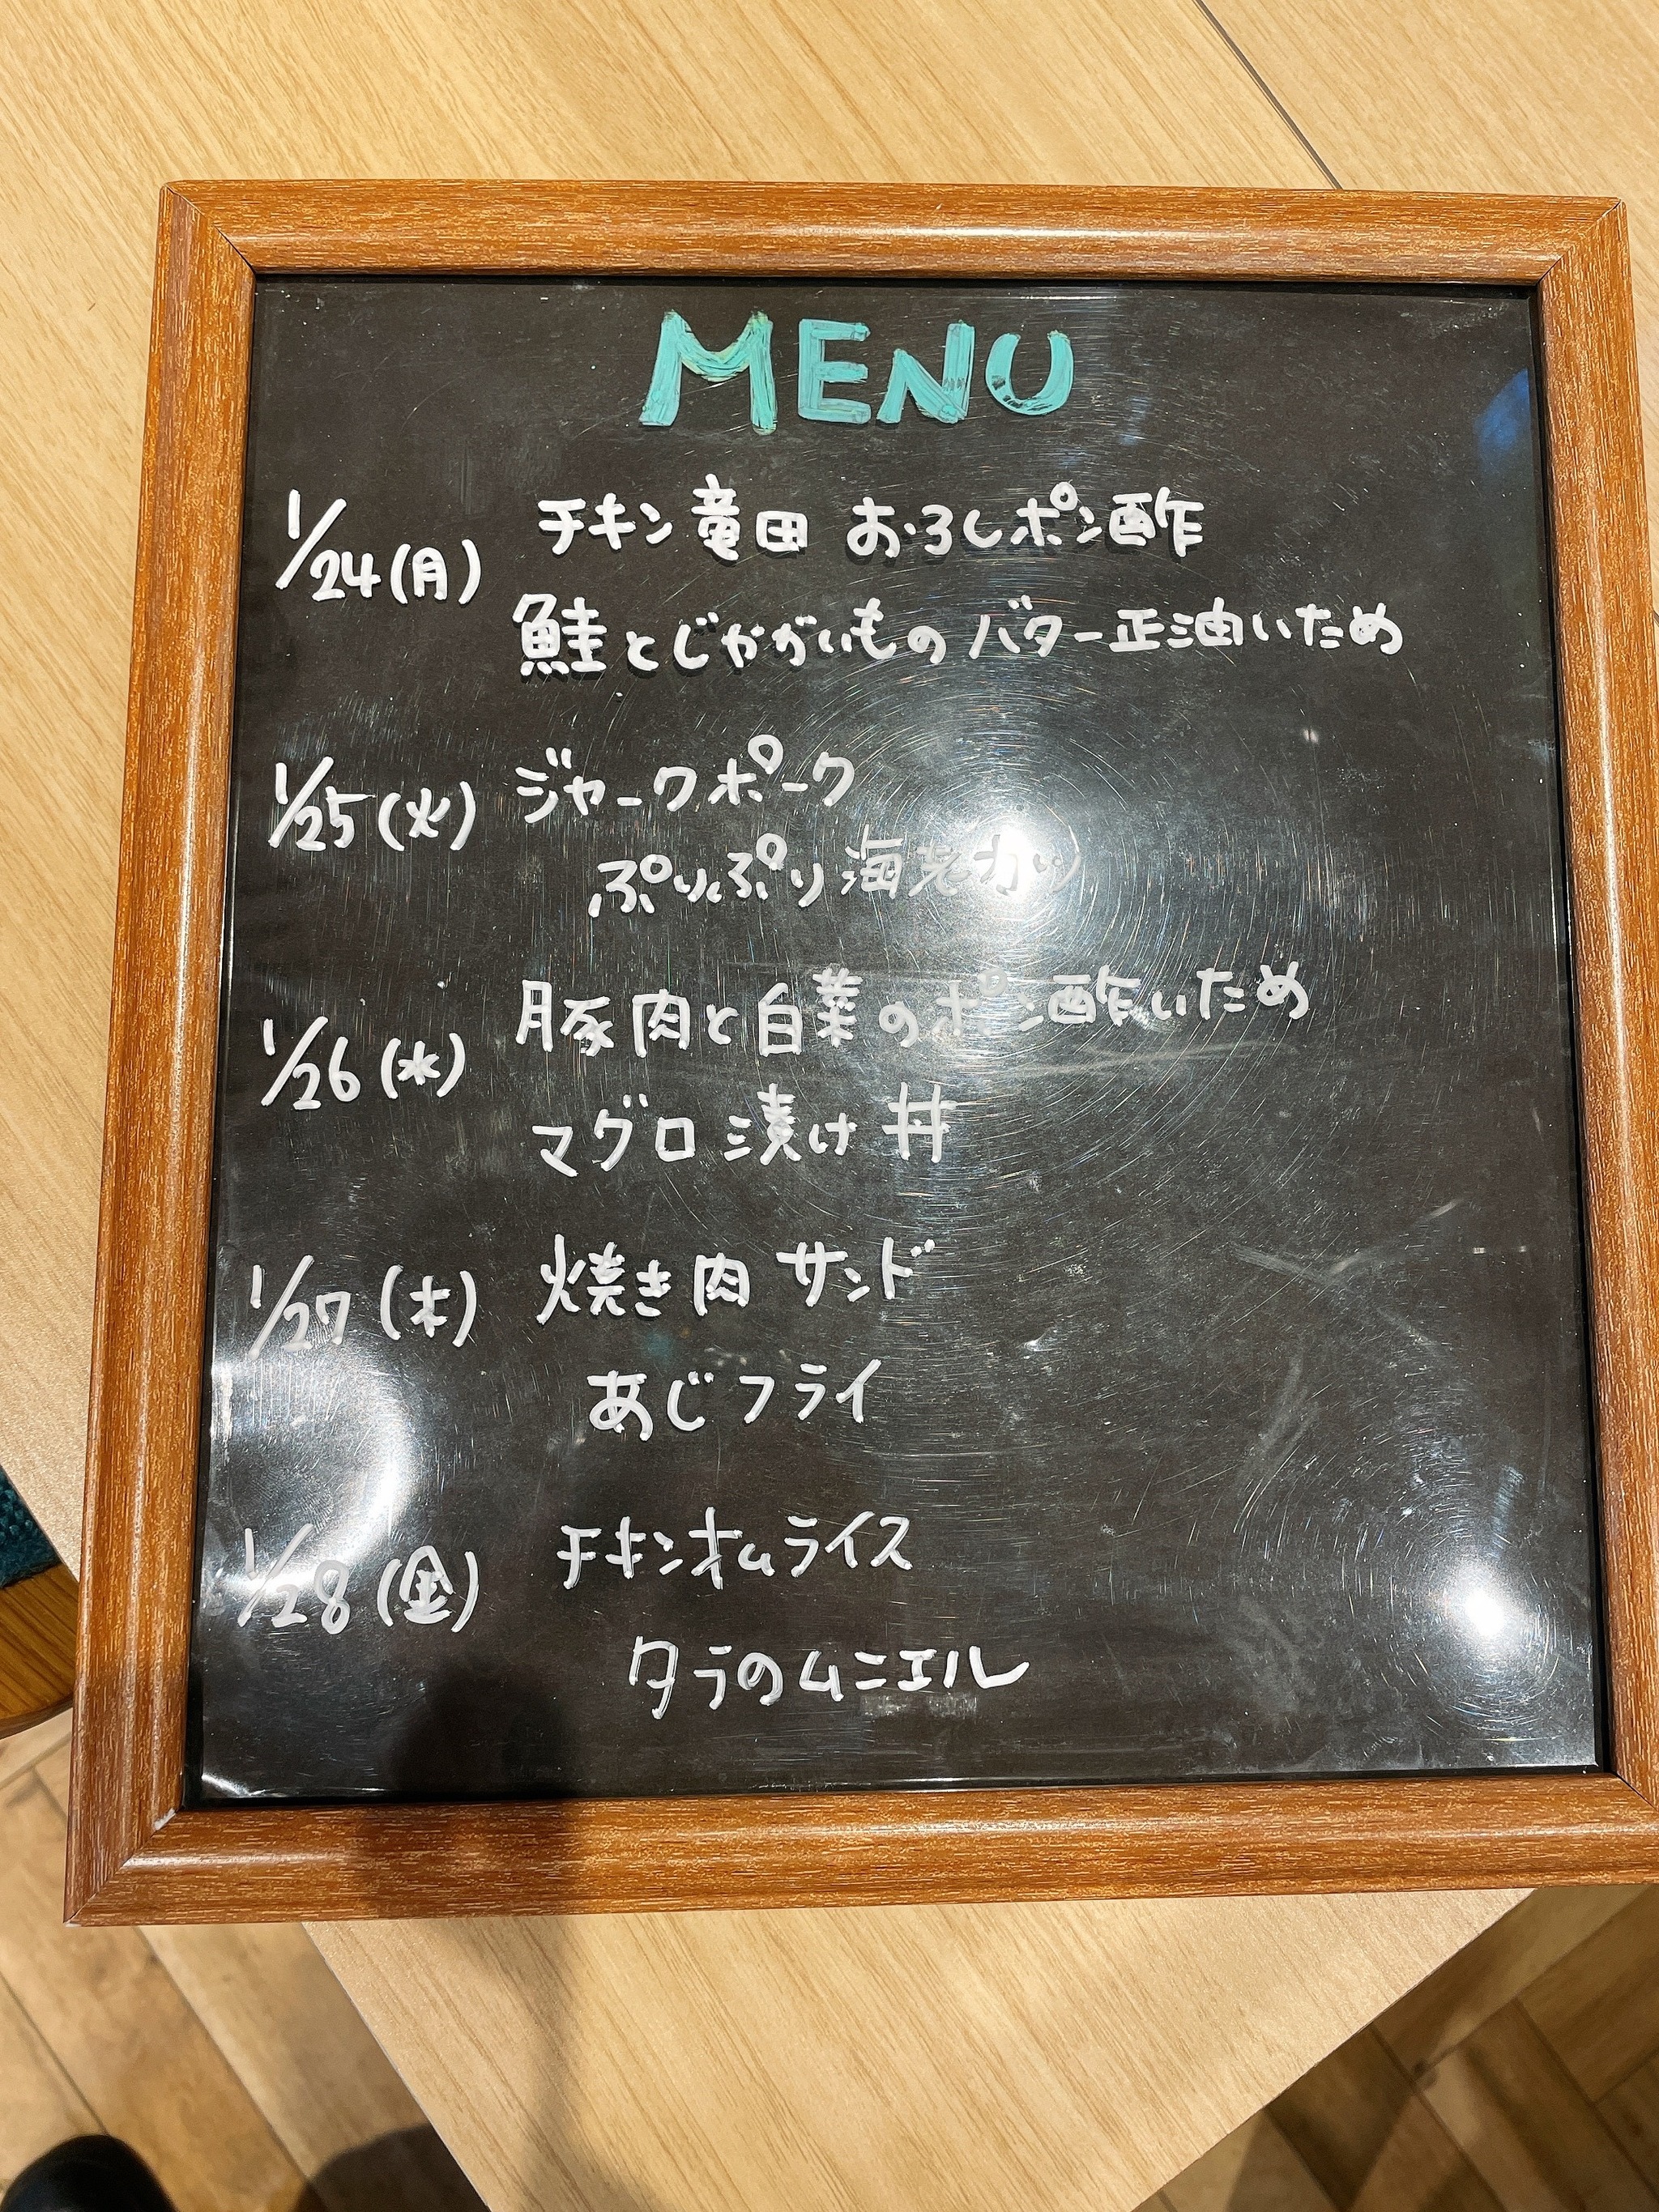 MENU
1/24(月) チキン竜田 おろしポン酢
鮭とじゃがいものバター正油いため
1/25(火) ジャークポーク
ぷりぷり海老カツ
1/26(水) 豚肉と白菜のポン酢いため
マグロ漬け丼
1/27(木) 焼き肉サンド
あじフライ
1/28(金) チキンオムライス
タラのムニエル